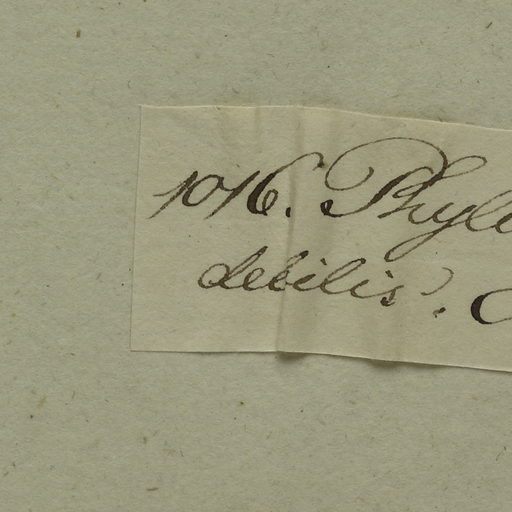 1016. Phyll
debilis.